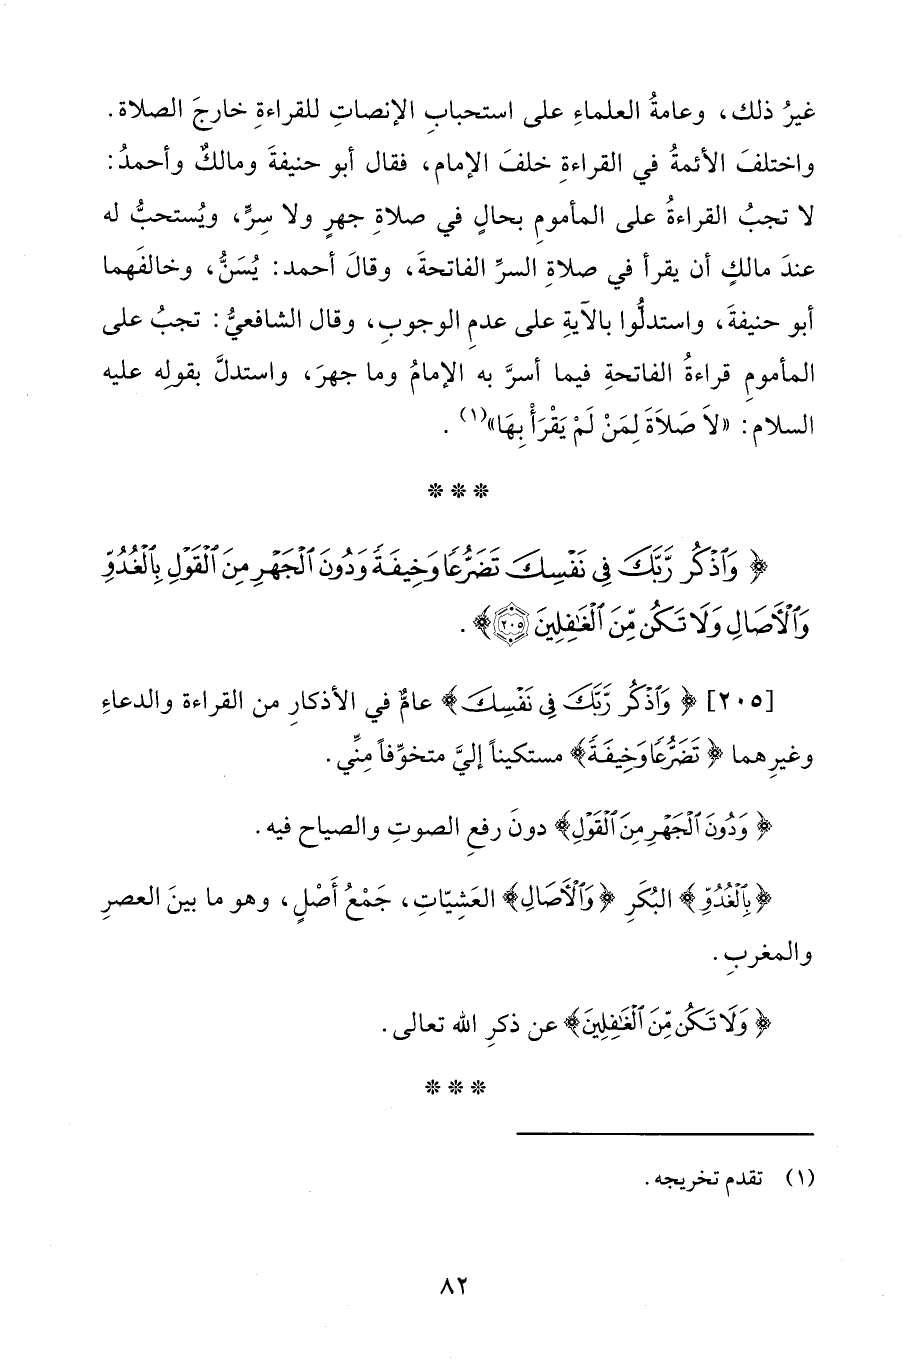 غيرُ ذلك، وعامةُ العلماءِ على استحبابِ الإنصاتِ للقراءةِ خارجَ الصلاة.
واختلفَ الأئمةُ في القراءةِ خلفَ الإمام، فقال أبو حنيفةَ ومالكٌ وأحمدُ:
لا تجبُ القراءةُ على المأمومِ بحالٍ في صلاةِ جهرٍ ولا سِرٍّ، ويُستحبُّ له
عندَ مالكٍ أن يقرأ في صلاةِ السرِّ الفاتحةَ، وقالَ أحمد: يُسَنُّ، وخالفَهما
أبو حنيفةَ، واستدلُّوا بالآيةِ على عدمِ الوجوبِ، وقال الشافعيُّ: تجبُ على
المأمومِ قراءةُ الفاتحةِ فيما أسرَّ به الإمامُ وما جهرَ، واستدلَّ بقولِه عليه
السلام: «لاَ صَلاَةَ لِمَنْ لَمْ يَقْرَأْ بِهَا»(١).
* * *
﴿ وَٱذْكُر رَّبَّكَ فِى نَفْسِكَ تَضَرُّعًا وَخِيفَةً وَدُونَ ٱلْجَهْرِ مِنَ ٱلْقَوْلِ بِٱلْغُدُوِّ
وَٱلْأَصَالِ وَلَا تَكُن مِّنَ ٱلْغَٰفِلِينَ ۝٢٠٥﴾.
[٢٠٥] ﴿ وَٱذْكُر رَّبَّكَ فِى نَفْسِكَ﴾ عامٌّ في الأذكارِ من القراءة والدعاءِ
وغيرِهما ﴿ تَضَرُّعًا وَخِيفَةً﴾ مستكيناً إليَّ متخوِّفاً مِنِّي.
﴿ وَدُونَ ٱلْجَهْرِ مِنَ ٱلْقَوْلِ﴾ دونَ رفعِ الصوتِ والصياح فيه.
﴿بِٱلْغُدُوِّ﴾ البُكَرِ ﴿وَٱلْأَصَالِ﴾ العَشِيّاتِ، جَمْعُ أَصْلٍ، وهو ما بينَ العصرِ
والمغربِ.
﴿ وَلَا تَكُن مِّنَ ٱلْغَٰفِلِينَ﴾ عن ذكرِ الله تعالى.
* * *
(١) تقدم تخريجه.
٨٢